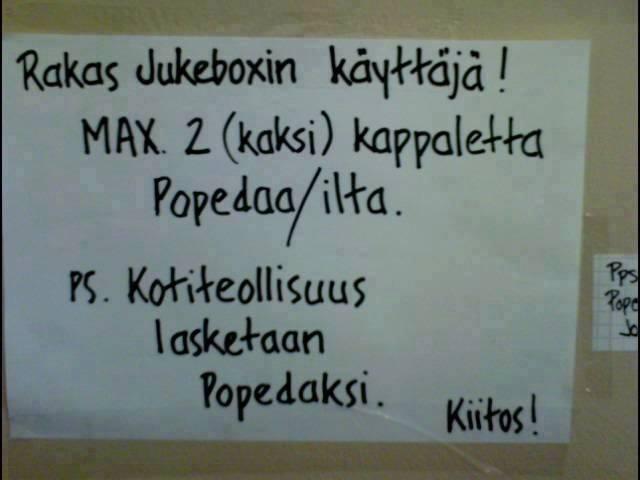 Rakas Jukeboxin käyttäjä!
MAX. 2 (kaksi) kappaletta
Popedaa/ilta.
PS. Kotiteollisuus
lasketaan
Popedaksi.
Kiitos!
Pps